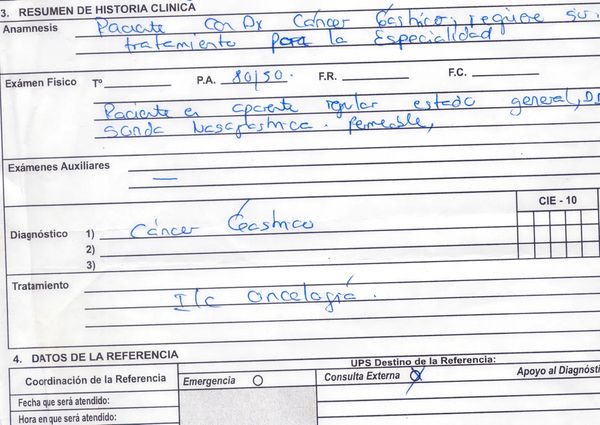 3. RESUMEN DE HISTORIA CLINICA
Anamnesis Paciente con Dx Cáncer Gástrico, requiere su
tratamiento para la Especialidad
Exámen Fisico Tº P.A. 80/50. F.R. F.C.
Paciente en aparente regular estado general,
sonda Nasogastrica. permeable,
Exámenes Auxiliares —
CIE - 10
Diagnóstico 1) Cáncer Gastrico
2)
3)
Tratamiento
I/c oncología.
4. DATOS DE LA REFERENCIA
UPS Destino de la Referencia:
Coordinación de la Referencia Emergencia Consulta Externa Apoyo al Diagnósti
Fecha que será atendido:
Hora en que será atendido: